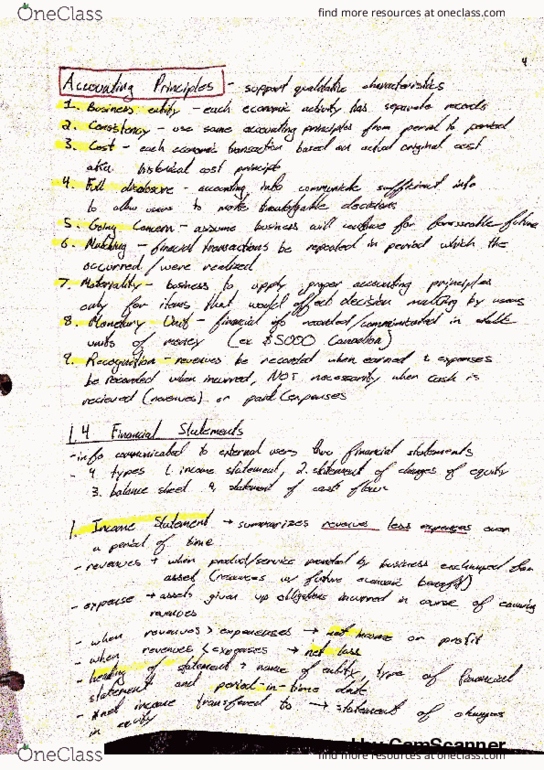 OneClass
find more resources at oneclass.com
4
Accounting Principles - support qualitative characteristics
1. Business entity - each economic activity has separate records
2. Consistency - use same accounting principles from period to period
3. Cost - each economic transaction based on actual original cost
aka historical cost principle
4. Full disclosure - accounting info communicate sufficient info
to allow users to make knowledgable decisions
5. Going Concern - assume business will continue for foreseeable future
6. Matching - financial transactions be reported in period which the
occurred / were realized
7. Materiality - business to apply proper accounting principles
only for items that would affect decision making by users
8. Monetary Unit - financial info recorded/communicated in
units of money (ex $5000 Canadian)
9. Recognition - revenues be recorded when earned & expenses
be recorded when incurred, NOT necessarily when cash is
recieved (revenues) or paid (expenses
1.4 Financial Statements
- info communicated to external users thru financial statements
- 4 types 1. income statement, 2. statement of changes of equity
3. balance sheet 4. statement of cash flow
1. Income Statement → summarizes revenues less expenses over
a period of time
- revenues → when product/service provided by business exchanged for
asset (resources w/ future economic benefit)
- expense → assets given up obligations incurred in course of earning
revenues
- when revenues > expenses → net income or profit
- when revenues < expenses → net loss
- heading of statement → name of entity, type of financial
statement and period-in-time date
- net income transferred to → statement of changes
in equity
CamScanner
OneClass
find more resources at oneclass.com